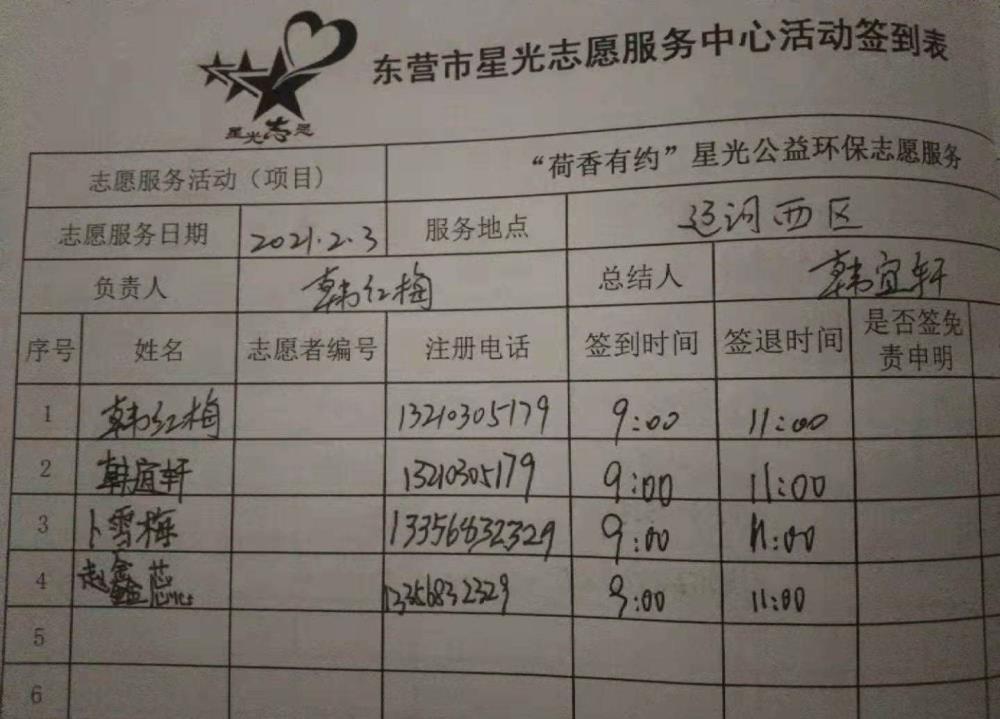 东营市星光志愿服务中心活动签到表
星光志愿
志愿服务活动（项目） “荷香有约”星光公益环保志愿服务
志愿服务日期 2021.2.3 服务地点 运河西区
负责人 韩红梅 总结人 韩宜轩
序号 姓名 志愿者编号 注册电话 签到时间 签退时间 是否签免责申明
1 韩红梅 13210305179 9:00 11:00
2 韩宜轩 13210305179 9:00 11:00
3 卜雪梅 13356832329 9:00 11:00
4 赵鑫蕊 13356832329 9:00 11:00
5
6